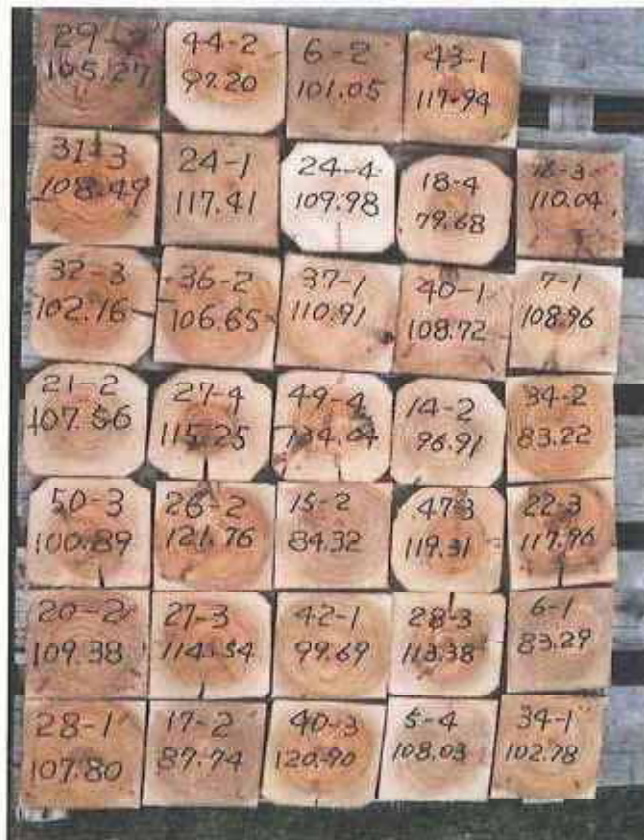 29-2
105.27
44-2
97.20
6-2
101.05
43-1
117.94
31-3
108.49
24-1
117.41
24-4
109.98
18-4
79.68
110.04
32-3
102.16
36-2
106.65
37-1
110.91
40-1
108.72
7-1
108.96
21-2
107.56
27-4
115.25
49-4
134.64
14-2
96.91
34-2
83.22
50-3
100.89
26-2
121.76
15-2
84.32
47-3
119.31
22-3
117.96
20-2
109.38
27-3
114.54
42-1
99.69
28-3
113.38
6-1
83.29
28-1
107.80
17-2
87.74
40-3
120.90
5-4
108.03
34-1
102.78